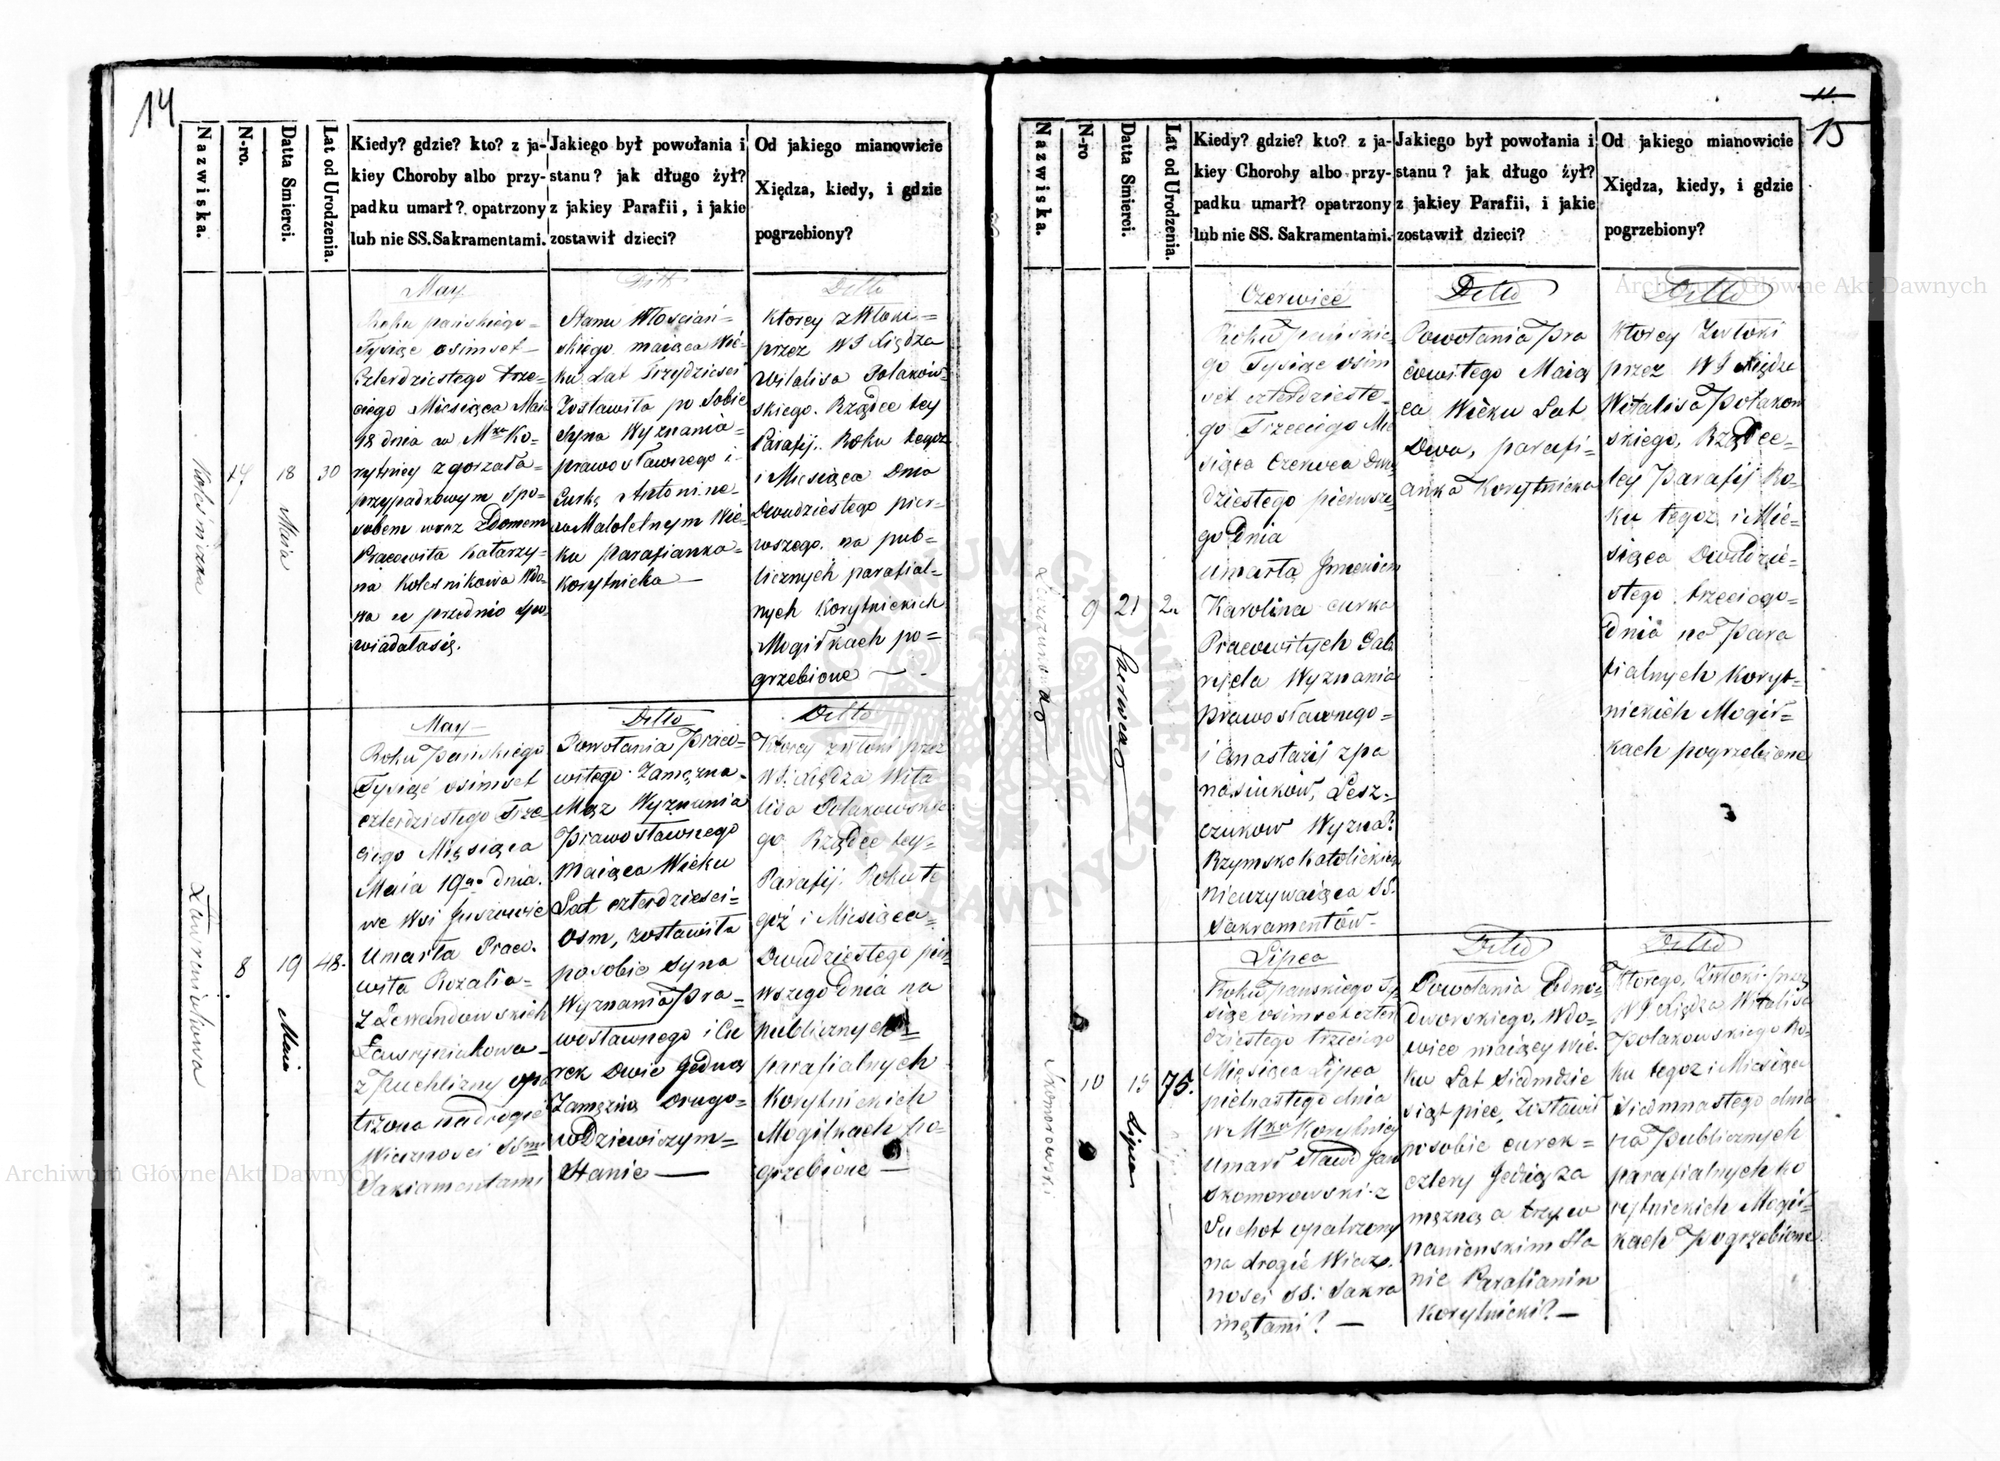 14
Nazwiska.
N-ro.
Datta Smierci.
Lat od Urodzenia.
Kiedy? gdzie? kto? z ja-
kiey Choroby albo przy-
padku umarł? opatrzony
lub nie SS. Sakramentami.
Jakiego był powołania i
stanu? jak długo żył?
z jakiey Parafii, i jakie
zostawił dzieci?
Od jakiego mianowicie
Xiędza, kiedy, i gdzie
pogrzebiony?
18
Maia
30
May
Roku pańskiego
Tysiąc osimset
czterdziestego trze-
ciego Miesiąca Maia
18 dnia w Mku Ko-
rytnicy zgorzała
przypadkowym spo-
sobem wraz z Domem
Pracowita Katarzy-
na Kolesnikowa Wdo-
wa przednio spo-
wiadałasię.
Stanu Włościań-
skiego maiąca Wie-
ku Lat trzydzieści
Zostawiła po sobie
Syna Wyznania
prawosławnego i
Curkę Antoninę
w Małoletnym Wie-
ku parafianka
Korytnicka
Ditto
Ktorey zwłoki
przez WJ Xiędza
Witalisa Połakow-
skiego. Rządcę tey
Parafij. Roku tegoż
i Miesiąca Dnia
Dwudziestego pier-
wszego. na pub-
licznych parafial-
nych Korytnickich
Mogiłkach po-
grzebione
8
19
Maia
48.
May
Roku Pańskiego
Tysiąc osimset
czterdziestego Trze-
ciego Miesiąca
Maia 19go dnia.
we Wsi
Umarła Praco-
wita Rozalia
z Lewandowskich
Ławryniukowa
z Puchliny opa
trzona na drogię
Wieczności SSmi
Sakramentami
Ditto
Powołania Praco-
witego Zamężna
Mąż Wyznania
Prawosławnego
Maiąca Wieku
Lat czterdzieści
osm, zostawiła
po sobie syna
Wyznania Pra-
wosławnego i Cu
rek Dwie Jedną
Zamężną Drugo-
w Dziewiczym
Stanie
Ditto
Ktorey zwłoki przez
WJ. Xiędza Wita
lisa Połakowskie
go Rządcę tey
Parafij. Roku te
goż i Miesiąca
Dwudziestego pier
wszego Dnia na
publicznych
parafialnych
Korytnickich
Mogiłkach po-
grzebione
11.
15
Nazwiska.
N-ro
Datta Smierci.
Lat od Urodzenia.
Kiedy? gdzie? kto? z ja-
kiey Choroby albo przy-
padku umarł? opatrzony
lub nie SS. Sakramentami.
Jakiego był powołania i
stanu? jak długo żył?
z jakiey Parafii, i jakie
zostawił dzieci?
Od jakiego mianowicie
Xiędza, kiedy, i gdzie
pogrzebiony?
9
21
Czerwca
Czerwiec
Roku pańskie
go Tysiąc osim
set czterdzieste-
go Trzeciego Mie
siąca Czerwca Dwu
dziestego pierwsze
go Dnia
Umarła Jmieniem
Karolina curka
Pracowitych Gab
ryela Wyznania
Prawosławnego
i Anastazij z pa
nasiuków, Lesz-
czukow Wyzna:
Rzymsko Katolickiego
nieuzywaiąca SS.
Sakramentów.
Ditto
Powołania Pra
cowitego Maią
ca Wieku Lat
Dwa, parafi-
anka Korytnicka
Ditto
Ktorey Zwłoki
przez WJ Xiędza
Witalisa Połakow
skiego, Rządcę
tey Parafij Ro-
ku tegoż i Mie-
siąca Dwudzie-
stego trzeciego
Dnia na Para
fialnych Koryt-
nickich Mogił-
kach pogrzebione
Skomorowski
10
15
Lipca
75.
Lipca
Roku Pańskiego Ty
siąc osimset czter
dziestego trzeciego
Miesiąca Lipca
pietnastego dnia
w Mku Korytnicy
Umarł Sławo Jan
Skomorowski z
Suchot opatrzony
na drogię Wiecz-
ności SS: Sakra
mętami? —
Ditto
Powołania Edno-
dworskiego, Wdo-
wiec maiący Wie-
ku Lat Siedmdzie
siąt pięc, Zostawił
po sobie curek
cztery Jedną za
mężną a trzy w
panienskim sta
nie Parafianin
Korytnicki? —
Ditto
Ktorego, Zwłoki przez
WJ Xiędza Witalisa
Połakowskiego Ro-
ku tegoż i Miesiąca
Siedmnastego dnia
na Publicznych
parafialnych Ko
rytnickich Mogił-
kach Pogrzebione
Archiwum Główne Akt Dawnych
Archiwum Główne Akt Dawnych